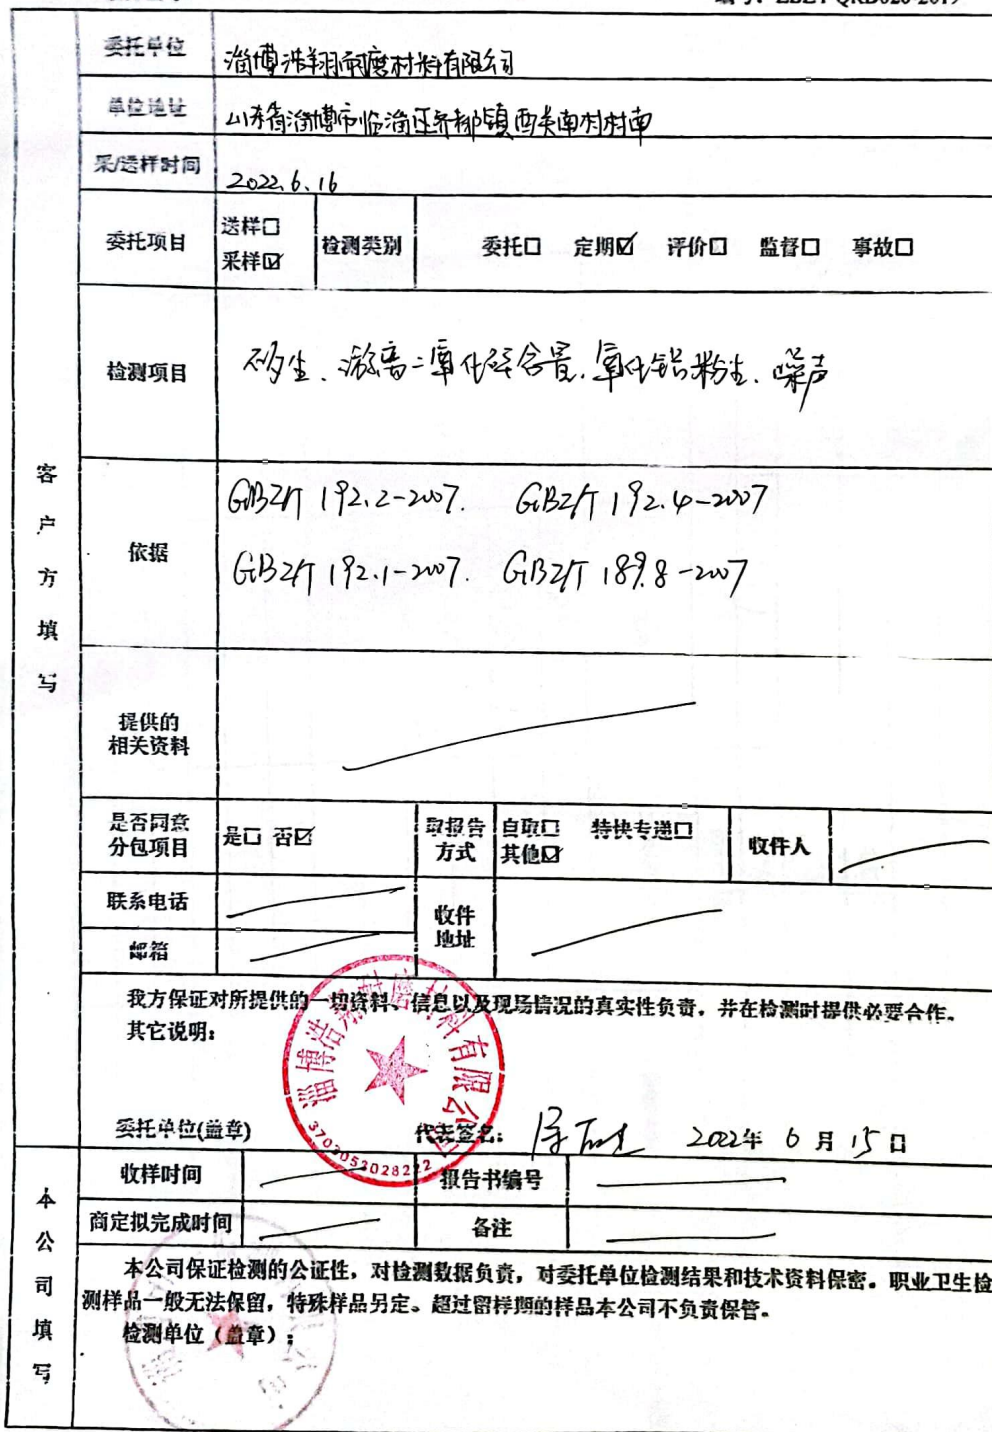 委托单位 淄博浩翔耐磨材料有限公司
单位地址 山东省淄博市临淄区齐都镇西关南村村南
采/送样时间 2022.6.16
委托项目 送样☐ 采样☑ 检测类别 委托☐ 定期☑ 评价☐ 监督☐ 事故☐
检测项目 矽尘、游离二氧化硅含量、氧化铝粉尘、噪声
客户方填写
依据
GBZ/T 192.2-2007. GBZ/T 192.4-2007
GBZ/T 192.1-2007. GBZ/T 189.8-2007
提供的
相关资料
是否同意
分包项目 是☐ 否☑
取报告
方式
自取☐ 特快专递☐
其他☑
收件人
联系电话
收件
地址
邮箱
我方保证对所提供的一切资料、信息以及现场情况的真实性负责，并在检测时提供必要合作。
其它说明：
淄博浩翔耐磨材料有限公司
3703053028222
委托单位(盖章) 代表签名： 2022年 6月 15日
收样时间 报告书编号
商定拟完成时间 备注
本公司填写
本公司保证检测的公证性，对检测数据负责，对委托单位检测结果和技术资料保密。职业卫生检
测样品一般无法保留，特殊样品另定。超过留样期的样品本公司不负责保管。
检测单位（盖章）：